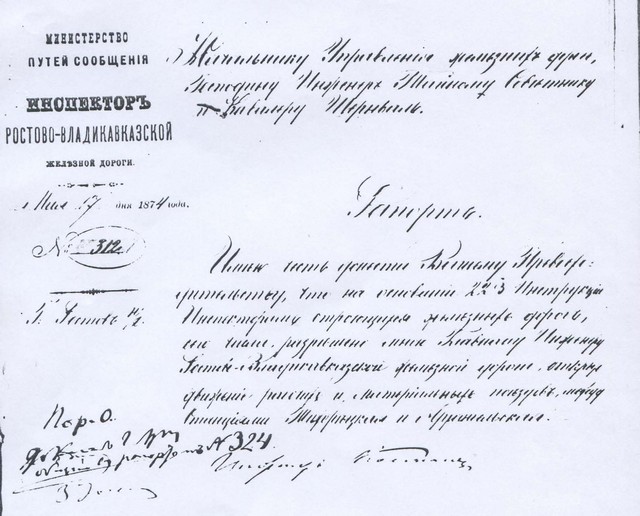 МИНИСТЕРСТВО
ПУТЕЙ СООБЩЕНІЯ
ИНСПЕКТОРЪ
РОСТОВО-ВЛАДИКАВКАЗСКОЙ
ЖЕЛѢЗНОЙ ДОРОГИ.
17 дня 1874 года.
№ 312
Г. Ростовъ н/Д.
Начальнику Управленія желѣзныхъ дорогъ,
Господину Инженеръ Тайному Совѣтнику
и Кавалеру Шернваль.
Рапортъ.
Имѣю честь донести Вашему Превосхо-
дительству, что на основаніи Инструкціи
Инспекторамъ строющихся желѣзныхъ дорогъ,
разрѣшено мною Главному Инженеру
Ростово-Владикавказской желѣзной дороги, открыть
движеніе рабочихъ и матеріальныхъ поѣздовъ, между
станціями Тихорѣцкая и
рапортъ № 324
Инспекторъ